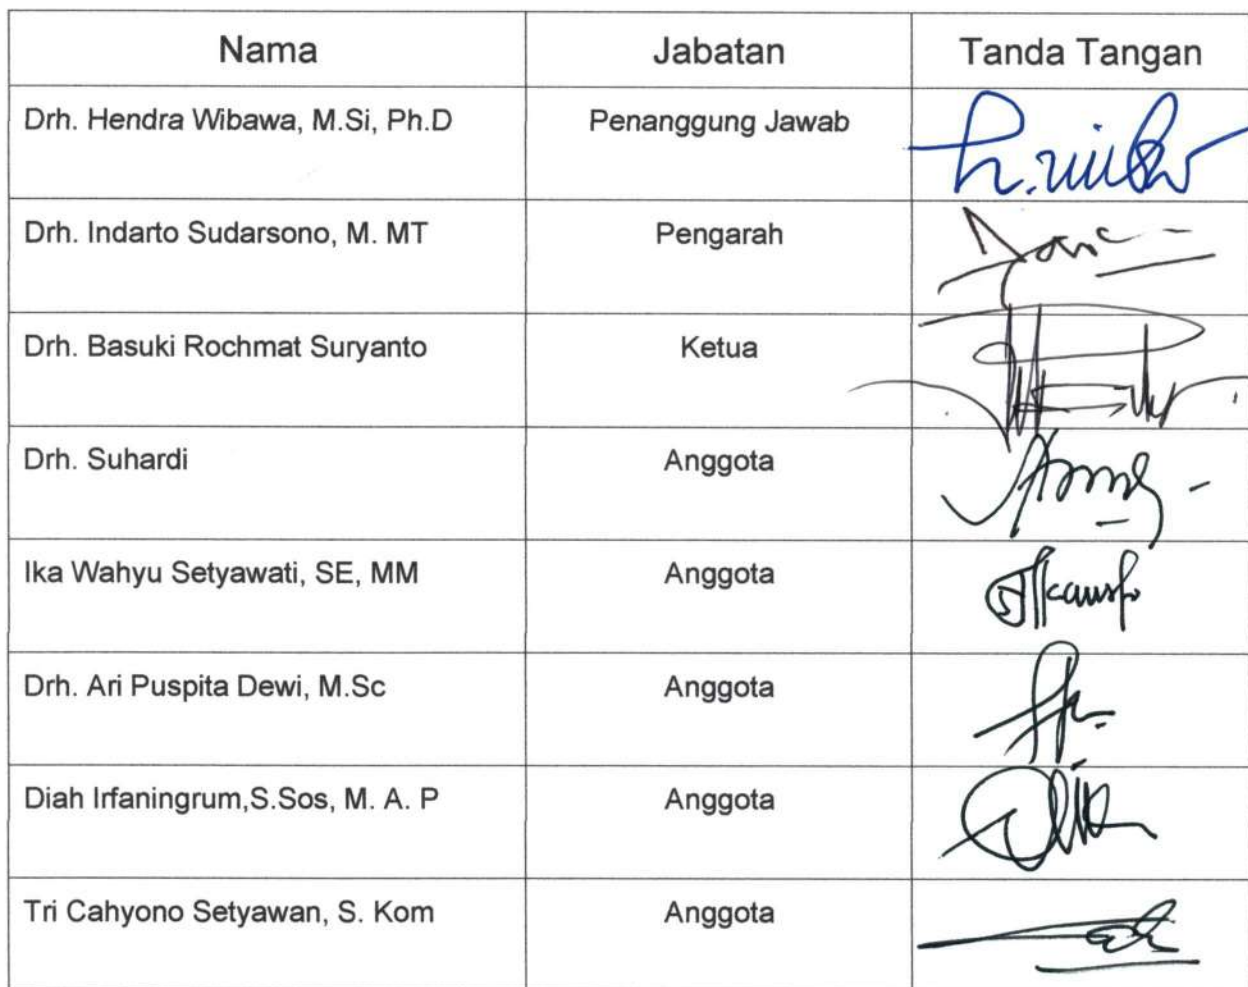 Nama Jabatan Tanda Tangan
Drh. Hendra Wibawa, M.Si, Ph.D Penanggung Jawab
Drh. Indarto Sudarsono, M. MT Pengarah
Drh. Basuki Rochmat Suryanto Ketua
Drh. Suhardi Anggota
Ika Wahyu Setyawati, SE, MM Anggota
Drh. Ari Puspita Dewi, M.Sc Anggota
Diah Irfaningrum,S.Sos, M. A. P Anggota
Tri Cahyono Setyawan, S. Kom Anggota